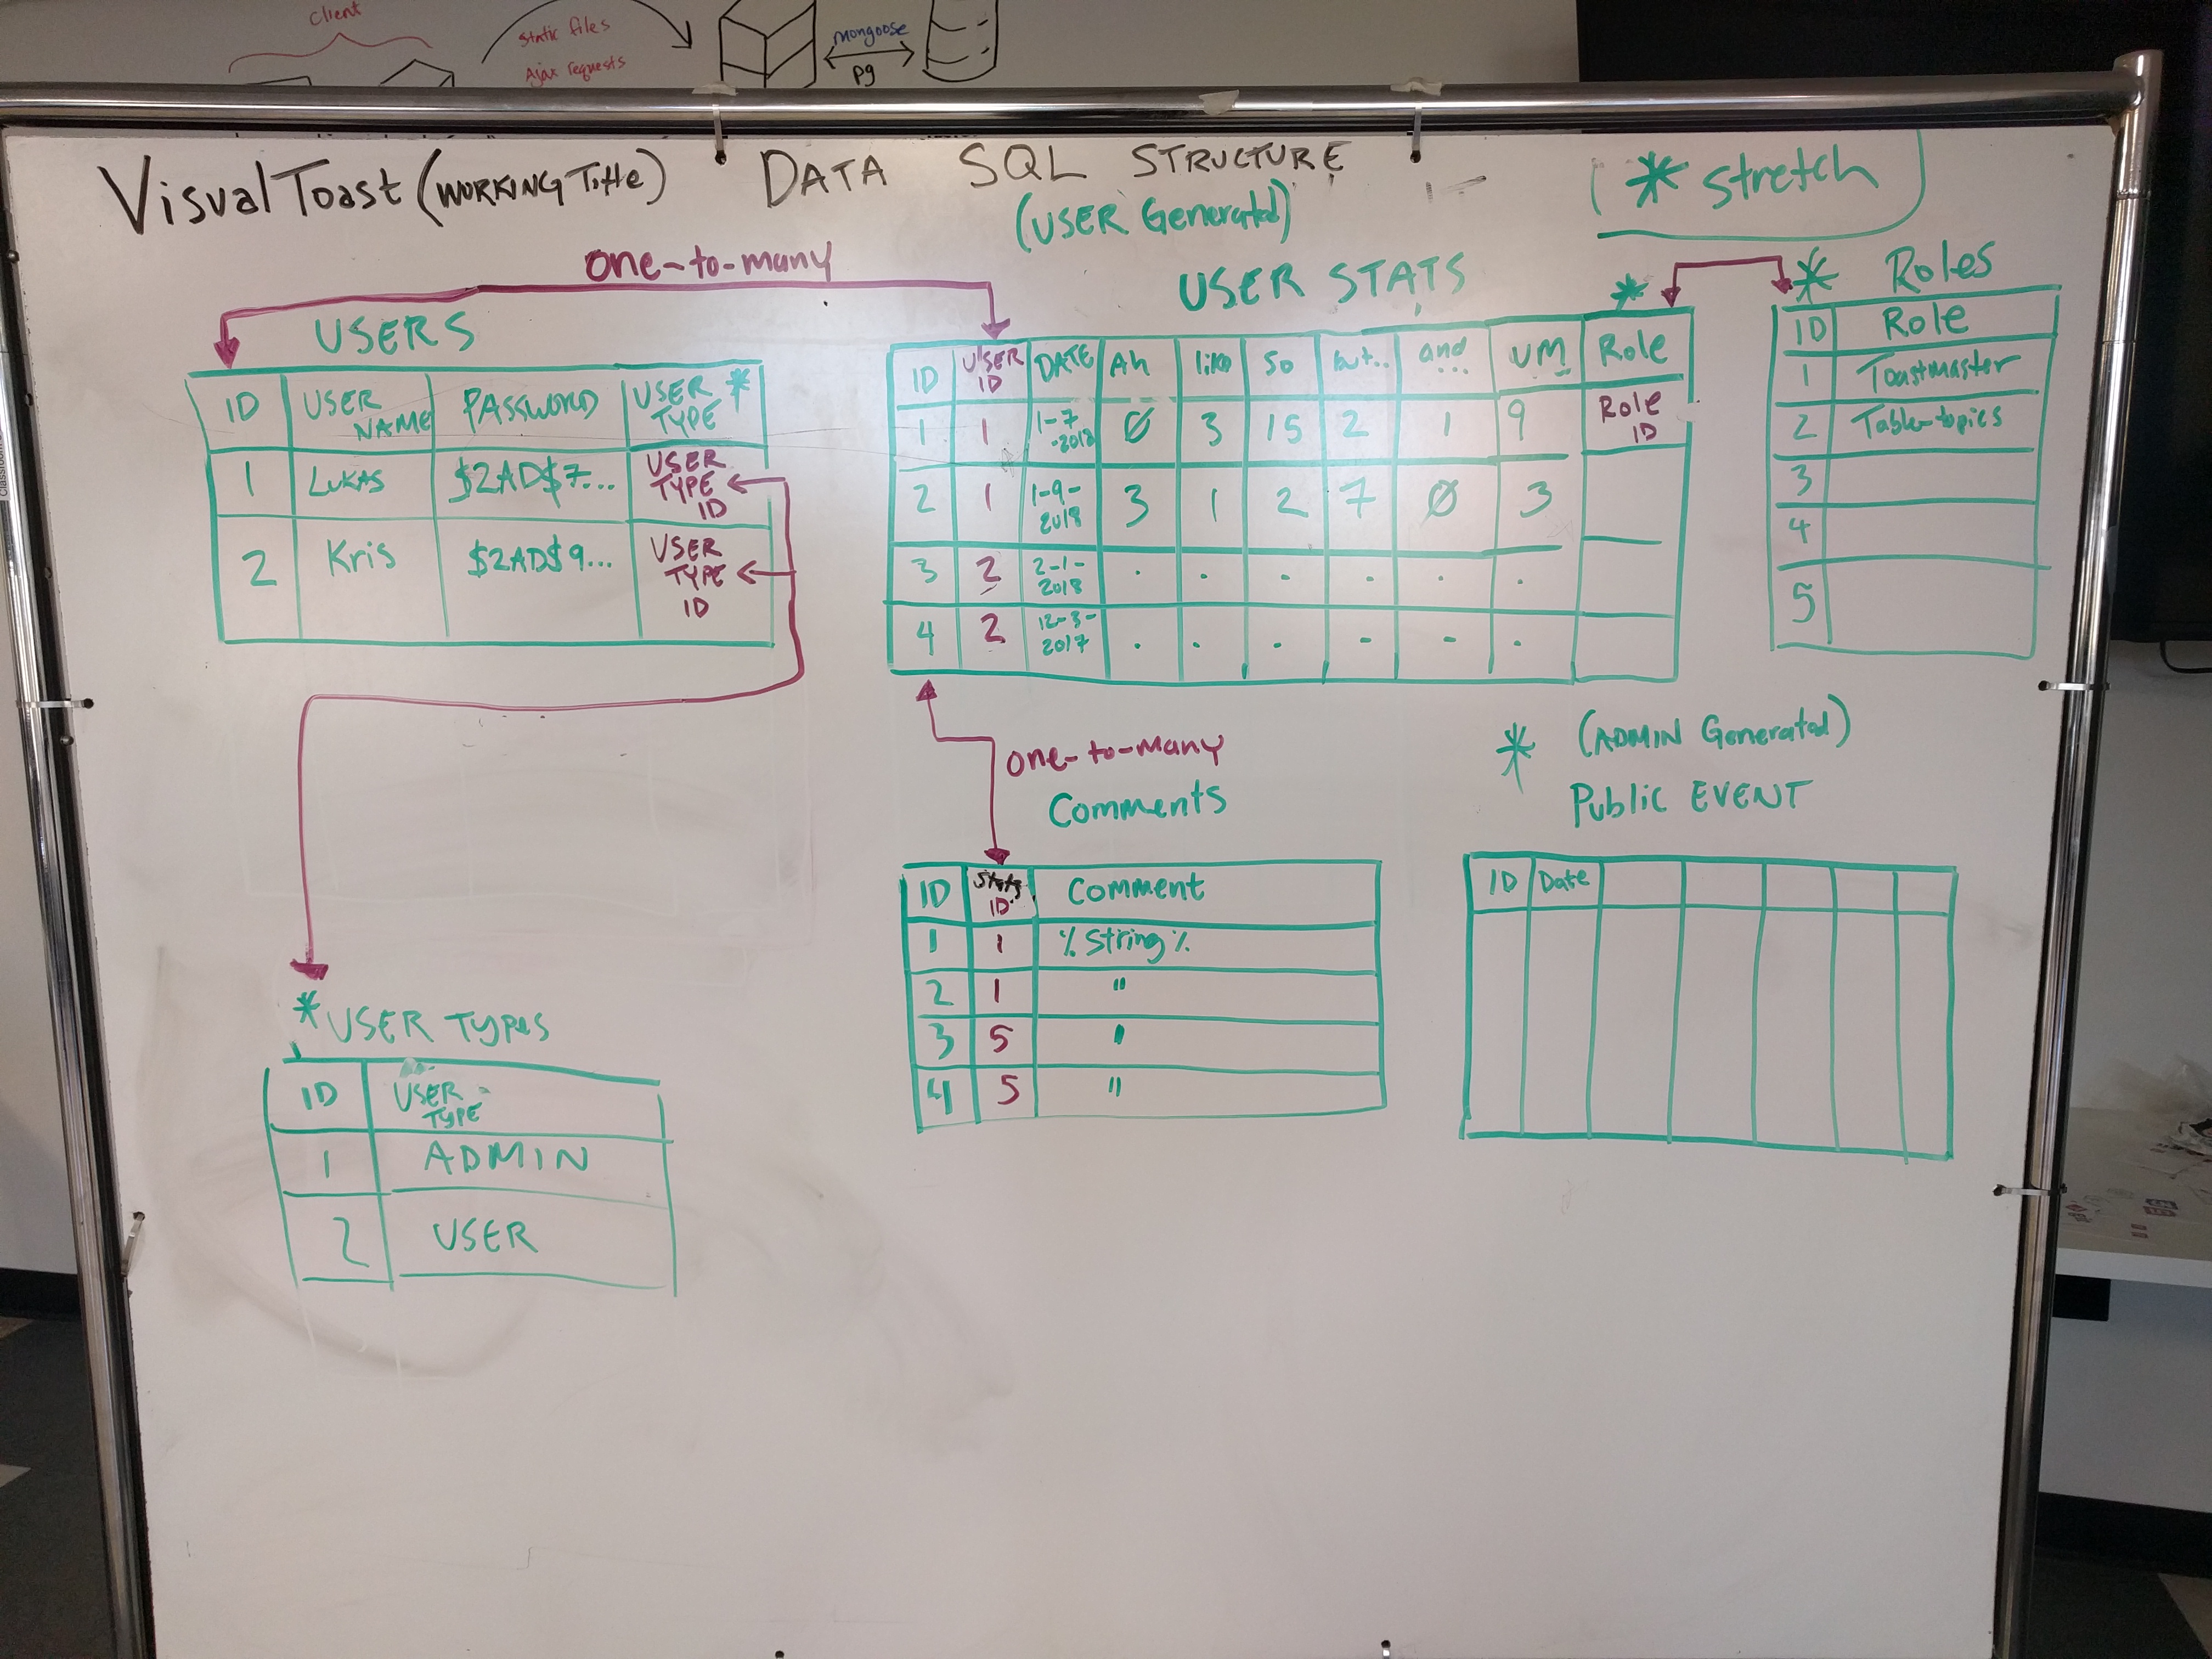 Client
Static files
Ajax requests
mongoose
pg
VisualToast (WORKING Title) DATA SQL STRUCTURE
(USER Generated)
* Stretch
one-to-many
USERS
ID USER NAME PASSWORD USER TYPE *
1 LUKAS $2AD$7... USER TYPE ID
2 Kris $2AD$9... USER TYPE ID
USER STATS
*
ID USER ID DATE Ah like So but.. and ... UM Role
1 1 1-7-2018 Ø 3 15 2 1 9 Role ID
2 1 1-9-2018 3 1 2 7 Ø 3
3 2 2-1-2018 . . . . . .
4 2 12-3-2017 . . . - - .
* Roles
ID Role
1 Toastmaster
2 Table-topics
3
4
5
one-to-many
Comments
ID Stats ID Comment
1 1 % String %
2 1 "
3 5 "
4 5 "
* (ADMIN Generated)
Public EVENT
ID Date
* USER TYPES
ID USER TYPE
1 ADMIN
2 USER